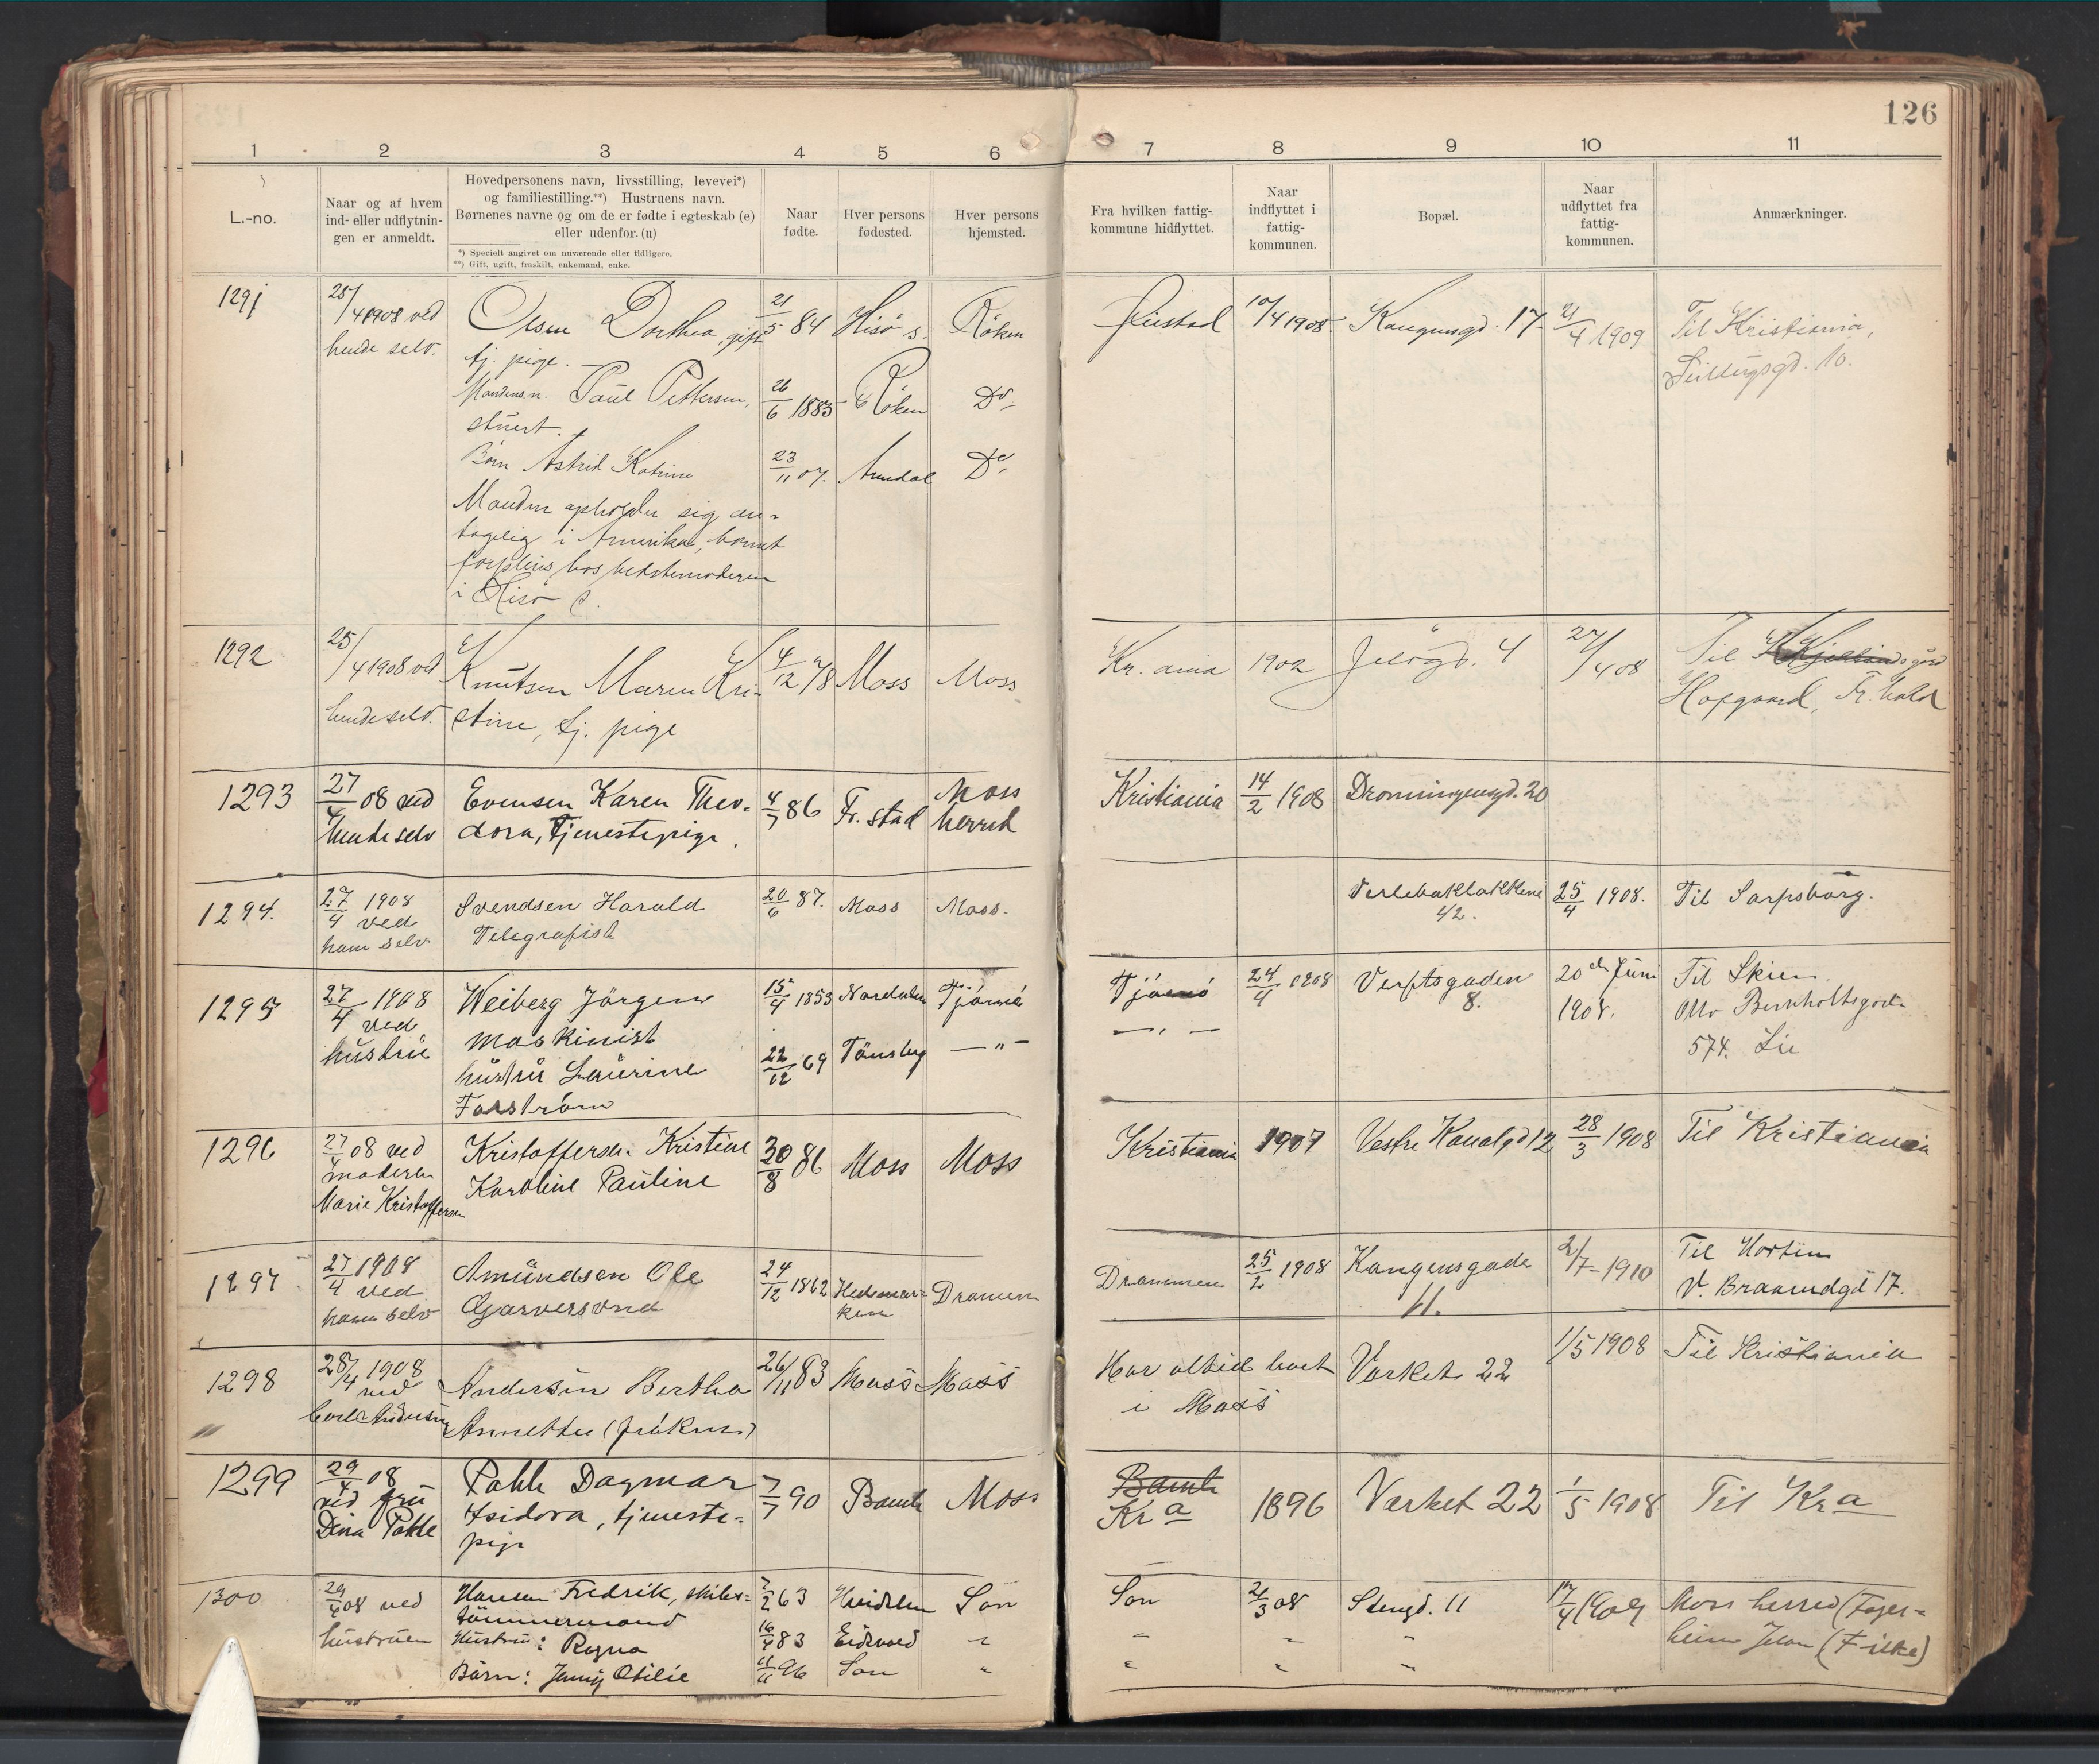 126
1 2 3 4 5 6 7 8 9 10 11
L.-no.
Naar og af hvem
ind- eller udflytnin-
gen er anmeldt.
Hovedpersonens navn, livsstilling, levevei*)
og familiestilling.**) Hustruens navn.
Børnenes navne og om de er fødte i egteskab (e)
eller udenfor. (u)
*) Specielt angivet om nuværende eller tidligere.
**) Gift, ugift, fraskilt, enkemand, enke.
Naar
fødte.
Hver persons
fødested.
Hver persons
hjemsted.
Fra hvilken fattig-
kommune hidflyttet.
Naar
indflyttet i
fattig-
kommunen.
Bopæl.
Naar
udflyttet fra
fattig-
kommunen.
Anmærkninger.
1291 25/4 1908 ved Olsen Dorthea, gift 21/5 84 Hisö s. Röken 10/4 1908 Kongensgd. 17 21/4 1909 Til Kristiania,
hende selv. tj. pige. 10.
Mandens n. Paul Pettersen, 26/6 1883 Röken Do
stuert.
Börn Astrid Katrine 23/11 07. Arendal Do
Manden opholder sig an-
tagelig i Amerika, barnet
forpleies hos bedstemoderen
i Hisö s.
1292 25/4 1908 ved Knutsen Maren Kri- 4/12 78 Moss Moss Kr.ania 1902 Jelögd. 4 27/4 08 Til
hende selv. stine, tj. pige Hafgaard, Fr.hald
1293 27/4 08 ved Evensen Karen Theo- 4/7 86 Fr.stad Moss Kristiania 14/2 1908 Dronningensgd. 20
hende selv dora, Tjenestepige. herred
1294. 27/4 1908 Svendsen Harald 20/6 87. Moss Moss. Verlebakløkkene 25/4 1908. Til Sarpsborg.
ved Telegrafist 42.
ham selv
1295 27/4 1908 Weiberg Jörgen 15/4 1853 Nordalen Tjömö Tjömö 24/4 1908 Verftsgaden 20de Juni Til Skien
ved maskinist 8. 1908. Otto Bernholtsgade
hustru hüstrü Laurine 22/12 69 Tönsberg — " — — " — 574. Lie
Forström
1296 27/4 08 ved Kristoffersen Kristine 30/8 86 Moss Moss Kristiania 1907 Vestre Kanalgd 12 28/3 1908 Til Kristiania
moderen Karoline Pauline
Marie Kristoffersen
1297 27/4 1908 Amundsen Ole 24/12 1862 Hedemar- Dramen Drammen 25/2 1908 Kongensgade 2/7-1910 Til Horten
ved Garversvend ken 11. V. Braarudgd 17.
ham selv
1298 28/4 1908 Andersen Bertha 26/11 83 Moss Moss Har altid boet Værket 22 1/5 1908 Til Kristiania
ved Annette (fröken) i Moss
Carl Andersen
1299 29/4 08 Pahle Dagmar 7/7 90 Bamle Moss Bamle 1896 Værket 22 1/5 1908 Til Kra
ved frü Isidora, tjeneste- Kra
Dina Pahle pige
1300 29/4 08 ved Hansen Fredrik, skibs- 7/2 63 Hvidsten Son Son 21/3 08 Stengd. 11 17/4 1909 Moss herred (Fager-
hustruen tömmermand heim Jelöen (Filke)
Hustru: Ragna 16/4 83 Eidsvold " " " "
Börn: Jenny Otilie 11/11 96 Son " " " "